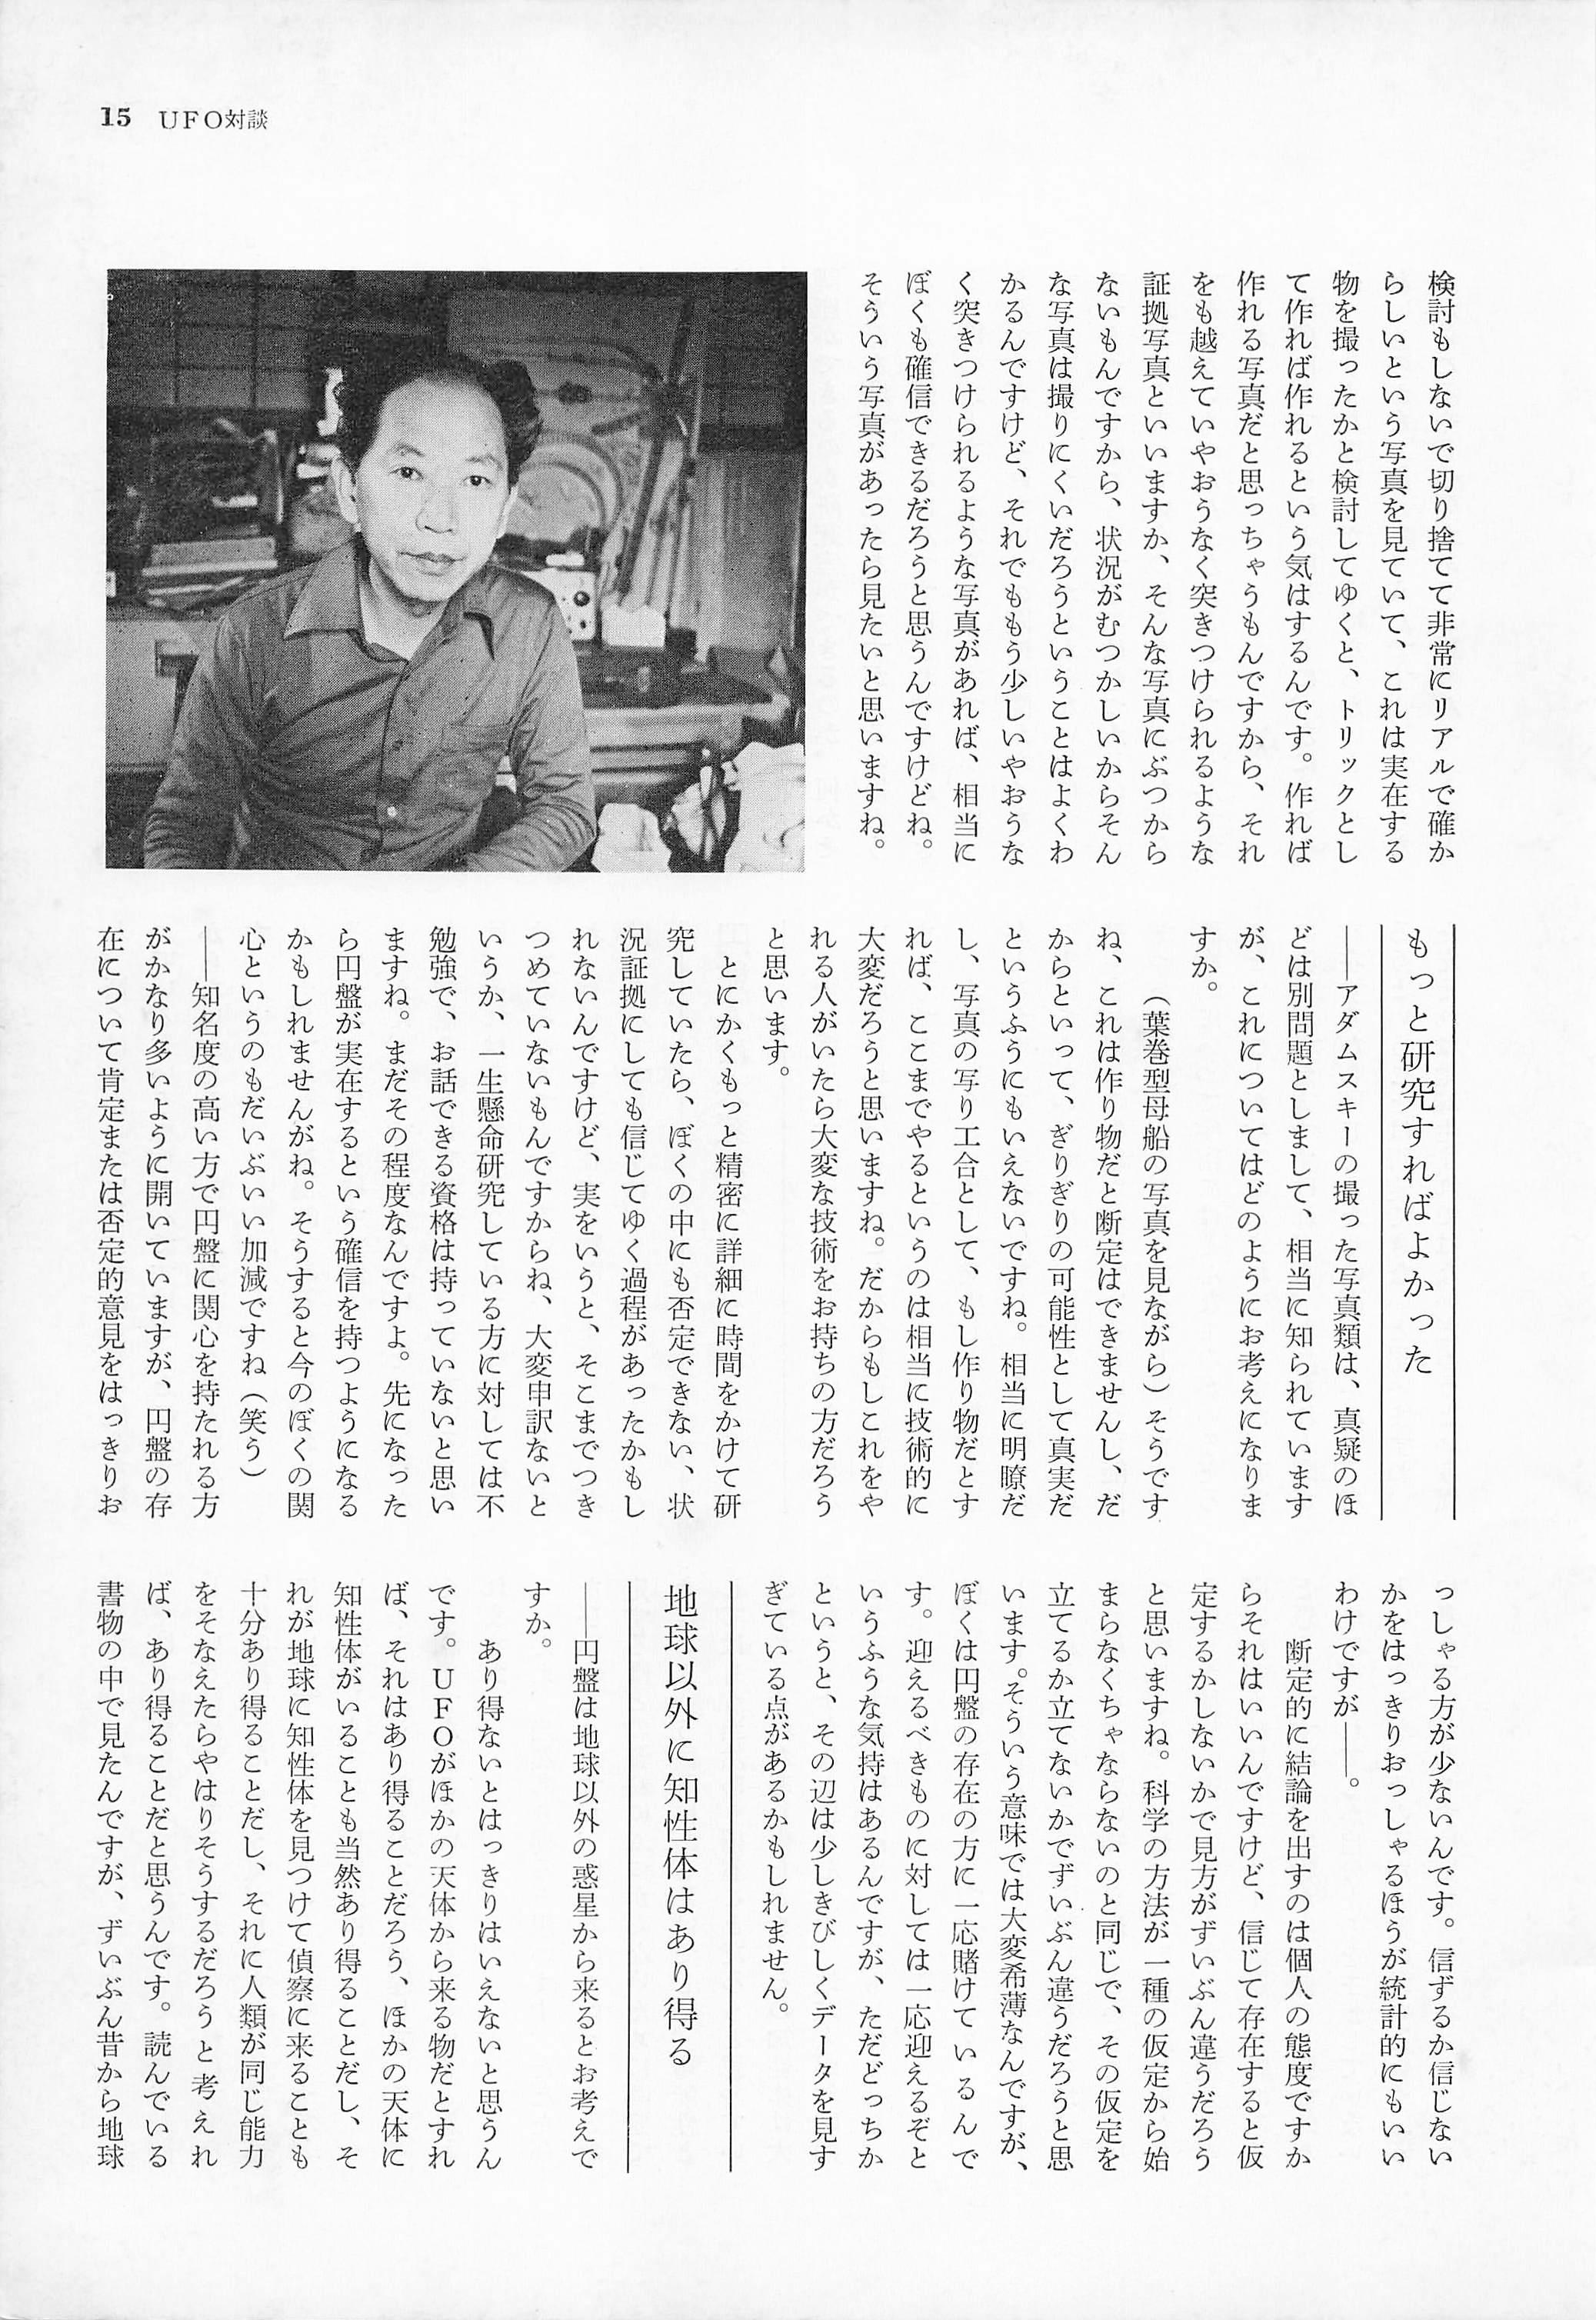 15 UFO対談
検討もしないで切り捨てて非常にリアルで確か
らしいという写真を見ていて、これは実在する
物を撮ったかと検討してゆくと、トリックとし
て作れば作れるという気はするんです。作れば
作れる写真だと思っちゃうもんですから、それ
をも越えていやおうなく突きつけられるような
証拠写真といいますか、そんな写真にぶつから
ないもんですから、状況がむつかしいからそん
な写真は撮りにくいだろうということはよくわ
かるんですけど、それでももう少しいやおうな
く突きつけられるような写真があれば、相当に
ぼくも確信できるだろうと思うんですけどね。
そういう写真があったら見たいと思いますね。
もっと研究すればよかった
――アダムスキーの撮った写真類は、真疑のほ
どは別問題としまして、相当に知られています
が、これについてはどのようにお考えになりま
すか。
（葉巻型母船の写真を見ながら）そうです
ね、これは作り物だと断定はできませんし、だ
からといって、ぎりぎりの可能性として真実だ
というふうにもいえないですね。相当に明瞭だ
し、写真の写り工合として、もし作り物だとす
れば、ここまでやるというのは相当に技術的に
大変だろうと思いますね。だからもしこれをや
れる人がいたら大変な技術をお持ちの方だろう
と思います。
とにかくもっと精密に詳細に時間をかけて研
究していたら、ぼくの中にも否定できない、状
況証拠にしても信じてゆく過程があったかもし
れないんですけど、実をいうと、そこまでつき
つめていないもんですからね、大変申訳ないと
いうか、一生懸命研究している方に対しては不
勉強で、お話できる資格は持っていないと思い
ますね。まだその程度なんですよ。先になった
ら円盤が実在するという確信を持つようになる
かもしれませんがね。そうすると今のぼくの関
心というのもだいぶいい加減ですね（笑う）
――知名度の高い方で円盤に関心を持たれる方
がかなり多いように開いていますが、円盤の存
在について肯定または否定的意見をはっきりお
っしゃる方が少ないんです。信ずるか信じない
かをはっきりおっしゃるほうが統計的にもいい
わけですが――。
断定的に結論を出すのは個人の態度ですか
らそれはいいんですけど、信じて存在すると仮
定するかしないかで見方がずいぶん違うだろう
と思いますね。科学の方法が一種の仮定から始
まらなくちゃならないのと同じで、その仮定を
立てるか立てないかでずいぶん違うだろうと思
います。そういう意味では大変希薄なんですが、
ぼくは円盤の存在の方に一応賭けているんで
す。迎えるべきものに対しては一応迎えるぞと
いうふうな気持はあるんですが、ただどっちか
というと、その辺は少しきびしくデータを見す
ぎている点があるかもしれません。
地球以外に知性体はあり得る
――円盤は地球以外の惑星から来るとお考えで
すか。
あり得ないとはっきりはいえないと思うん
です。UFOがほかの天体から来る物だとすれ
ば、それはあり得ることだろう、ほかの天体に
知性体がいることも当然あり得ることだし、そ
れが地球に知性体を見つけて偵察に来ることも
十分あり得ることだし、それに人類が同じ能力
をそなえたらやはりそうするだろうと考えれ
ば、あり得ることだと思うんです。読んでいる
書物の中で見たんですが、ずいぶん昔から地球